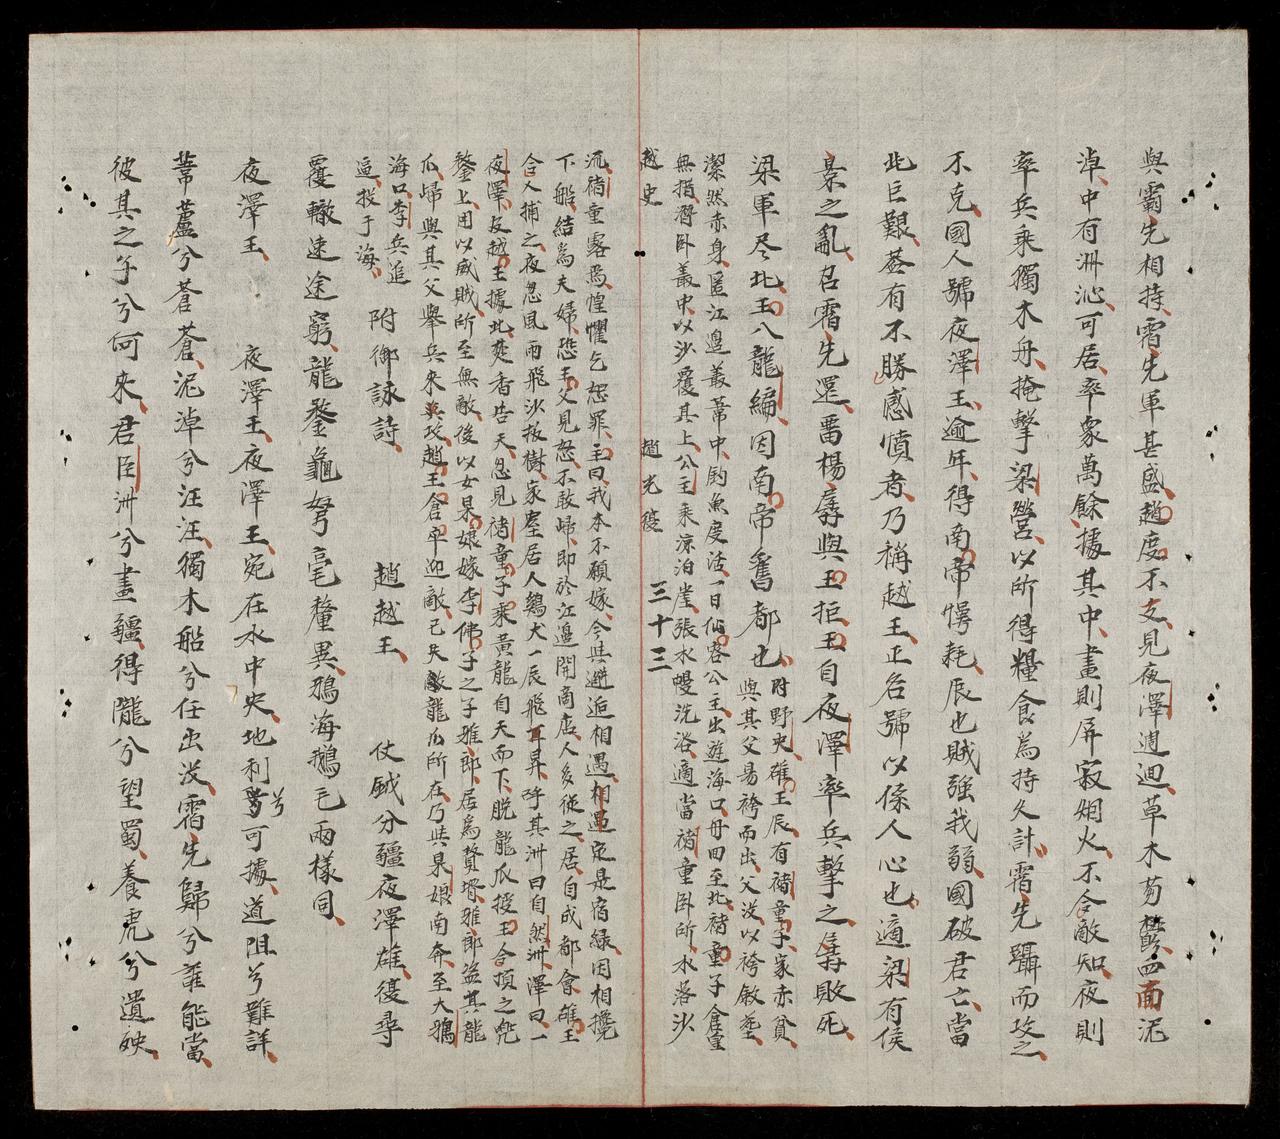 與霸先相持霜先軍甚盛趙度不支見夜澤週迴草木蒭欝四面泥
淖中有洲沁可居率衆萬餘據其中畫則屏寂烟火不令敵知夜則
率兵乘獨木舟掩擊梁營以所得糧食為持久計霜先躡而攻之
不克國人號夜澤王逾年得南帝愕耗辰也賊強我弱國破君亡當
此巨艱蓋有不勝感憤者乃稱越王正名號以係人心也適梁有侯
景之亂召霜先還畱楊孱與王拒王自夜澤率兵擊之孱敗死
梁軍尽北王入龍編因南帝舊都也
附野史雄王辰有禇童子家赤貧
與其父易袴而出父沒以袴斂塟
潔然赤身匿江邊叢葦中釣魚度活一日仙容公主出遊海口舟囬至此禇童子倉皇
無措潛卧叢中以沙覆其上公主乘涼泊崖張水幔洗浴適當禇童卧所水落沙
越史 趙光復 三十三
流禇童露焉惶懼乞恕罪主曰我本不願嫁今與邂逅相遇相遇定是宿緣因相攬
下船結爲夫婦恐王父見怒不敢歸即於江邊開商店人多從之居自成都會雄王
令人捕之夜忽風雨飛沙拔樹家塞居人鷄犬一辰飛耳昇呼其洲曰自然洲澤曰一
夜澤及越王據此焚香告天忽見禇童子乘黃龍自天而下脫龍瓜授王令頂之兜
鍪上用以威賊所至無敵後以女杲娘嫁李佛子之子雅郎居爲贅壻雅郎盗其龍
瓜歸與其父舉兵來攻趙王倉卒迎敵已失龍瓜所在乃與杲娘南奔至大鴉
海口李兵追
逼投于海 附御詠詩
趙越王 仗鉞分疆夜澤雄復尋
覆轍速途窮龍鍪龜弩毫釐異鴉海鵝毛兩樣同
夜澤王 夜澤王夜澤王宛在水中央地利兮可據道阻兮難詳
葦蘆兮蒼蒼泥淖兮汪汪獨木船兮任出沒霜先歸兮誰能當
彼其之子兮何來君臣洲兮畫疆得隴兮望蜀養虎兮遺殃